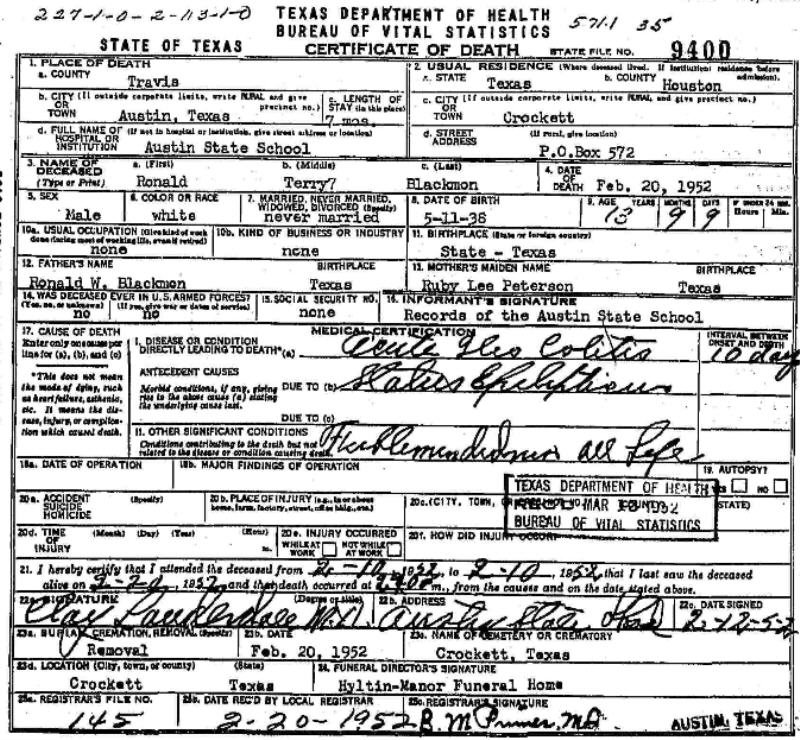 227-1-0-2-113-1-0 TEXAS DEPARTMENT OF HEALTH 571.1 35
BUREAU OF VITAL STATISTICS
STATE OF TEXAS CERTIFICATE OF DEATH STATE FILE NO. 9400
1. PLACE OF DEATH 2. USUAL RESIDENCE (Where deceased lived. If institution: residence before admission).
a. COUNTY Travis a. STATE Texas b. COUNTY Houston
b. CITY (If outside corporate limits, write RURAL and give precinct no.) OR TOWN Austin, Texas c. LENGTH OF STAY (in this place) 7 mos. c. CITY (If outside corporate limits, write RURAL and give precinct no.) OR TOWN Crockett
d. FULL NAME OF HOSPITAL OR INSTITUTION (If not in hospital or institution, give street address or location) Austin State School d. STREET ADDRESS (If rural, give location) P.O.Box 572
3. NAME OF DECEASED (Type or Print) a. (First) Ronald b. (Middle) Terry7 c. (Last) Blackmon 4. DATE OF DEATH Feb. 20, 1952
5. SEX Male 6. COLOR OR RACE white 7. MARRIED, NEVER MARRIED, WIDOWED, DIVORCED (Specify) never married 8. DATE OF BIRTH 5-11-38 9. AGE YEARS 13 MONTHS 9 DAYS 9 IF UNDER 24 HRS. Hours Min.
10a. USUAL OCCUPATION (Give kind of work done during most of working life, even if retired) none 10b. KIND OF BUSINESS OR INDUSTRY none 11. BIRTHPLACE (State or foreign country) State - Texas
12. FATHER'S NAME Ronald W. Blackmon BIRTHPLACE Texas 13. MOTHER'S MAIDEN NAME Ruby Lee Peterson BIRTHPLACE Texas
14. WAS DECEASED EVER IN U.S. ARMED FORCES? (Yes, no, or unknown) no (If yes, give war or dates of service) no 15. SOCIAL SECURITY NO. none 16. INFORMANT'S SIGNATURE Records of the Austin State School
17. CAUSE OF DEATH MEDICAL CERTIFICATION INTERVAL BETWEEN ONSET AND DEATH
Enter only one cause per line for (a), (b), and (c) I. DISEASE OR CONDITION DIRECTLY LEADING TO DEATH* (a) Acute Ileo Colitis 10 days
*This does not mean the mode of dying, such as heart failure, asthenia, etc. It means the disease, injury, or complication which caused death.
ANTECEDENT CAUSES
Morbid conditions, if any, giving rise to the above cause (a) stating the underlying cause last. DUE TO (b) Status Epilepticus
DUE TO (c)
II. OTHER SIGNIFICANT CONDITIONS
Conditions contributing to the death but not related to the disease or condition causing death. Feeblemindedness all Life
18a. DATE OF OPERATION 18b. MAJOR FINDINGS OF OPERATION 19. AUTOPSY? YES NO
TEXAS DEPARTMENT OF HEALTH
MAR 1952
BUREAU OF VITAL STATISTICS
20a. ACCIDENT SUICIDE HOMICIDE (Specify) 20b. PLACE OF INJURY (e.g., in or about home, farm, factory, street, office bldg., etc.) 20c. (CITY, TOWN, (STATE)
20d. TIME OF INJURY (Month) (Day) (Year) (Hour) m. 20e. INJURY OCCURRED WHILE AT WORK NOT WHILE AT WORK 20f. HOW DID INJURY OCCUR?
21. I hereby certify that I attended the deceased from 2-10, 1952, to 2-10, 1952, that I last saw the deceased
alive on 2-20, 1952, and that death occurred at m., from the causes and on the date stated above.
22a. SIGNATURE (Degree or title) Clay Lauderdale M.D. 22b. ADDRESS Austin State 22c. DATE SIGNED 2-12-5-2
23a. BURIAL, CREMATION, REMOVAL (Specify) Removal 23b. DATE Feb. 20, 1952 23c. NAME OF CEMETERY OR CREMATORY Crockett, Texas
23d. LOCATION (City, town, or county) Crockett (State) Texas 24. FUNERAL DIRECTOR'S SIGNATURE Hyltin-Manor Funeral Home
25a. REGISTRAR'S FILE NO. 145 25b. DATE REC'D BY LOCAL REGISTRAR 2-20-1952 25c. REGISTRAR'S SIGNATURE B. M Primer, MD. AUSTIN, TEXAS